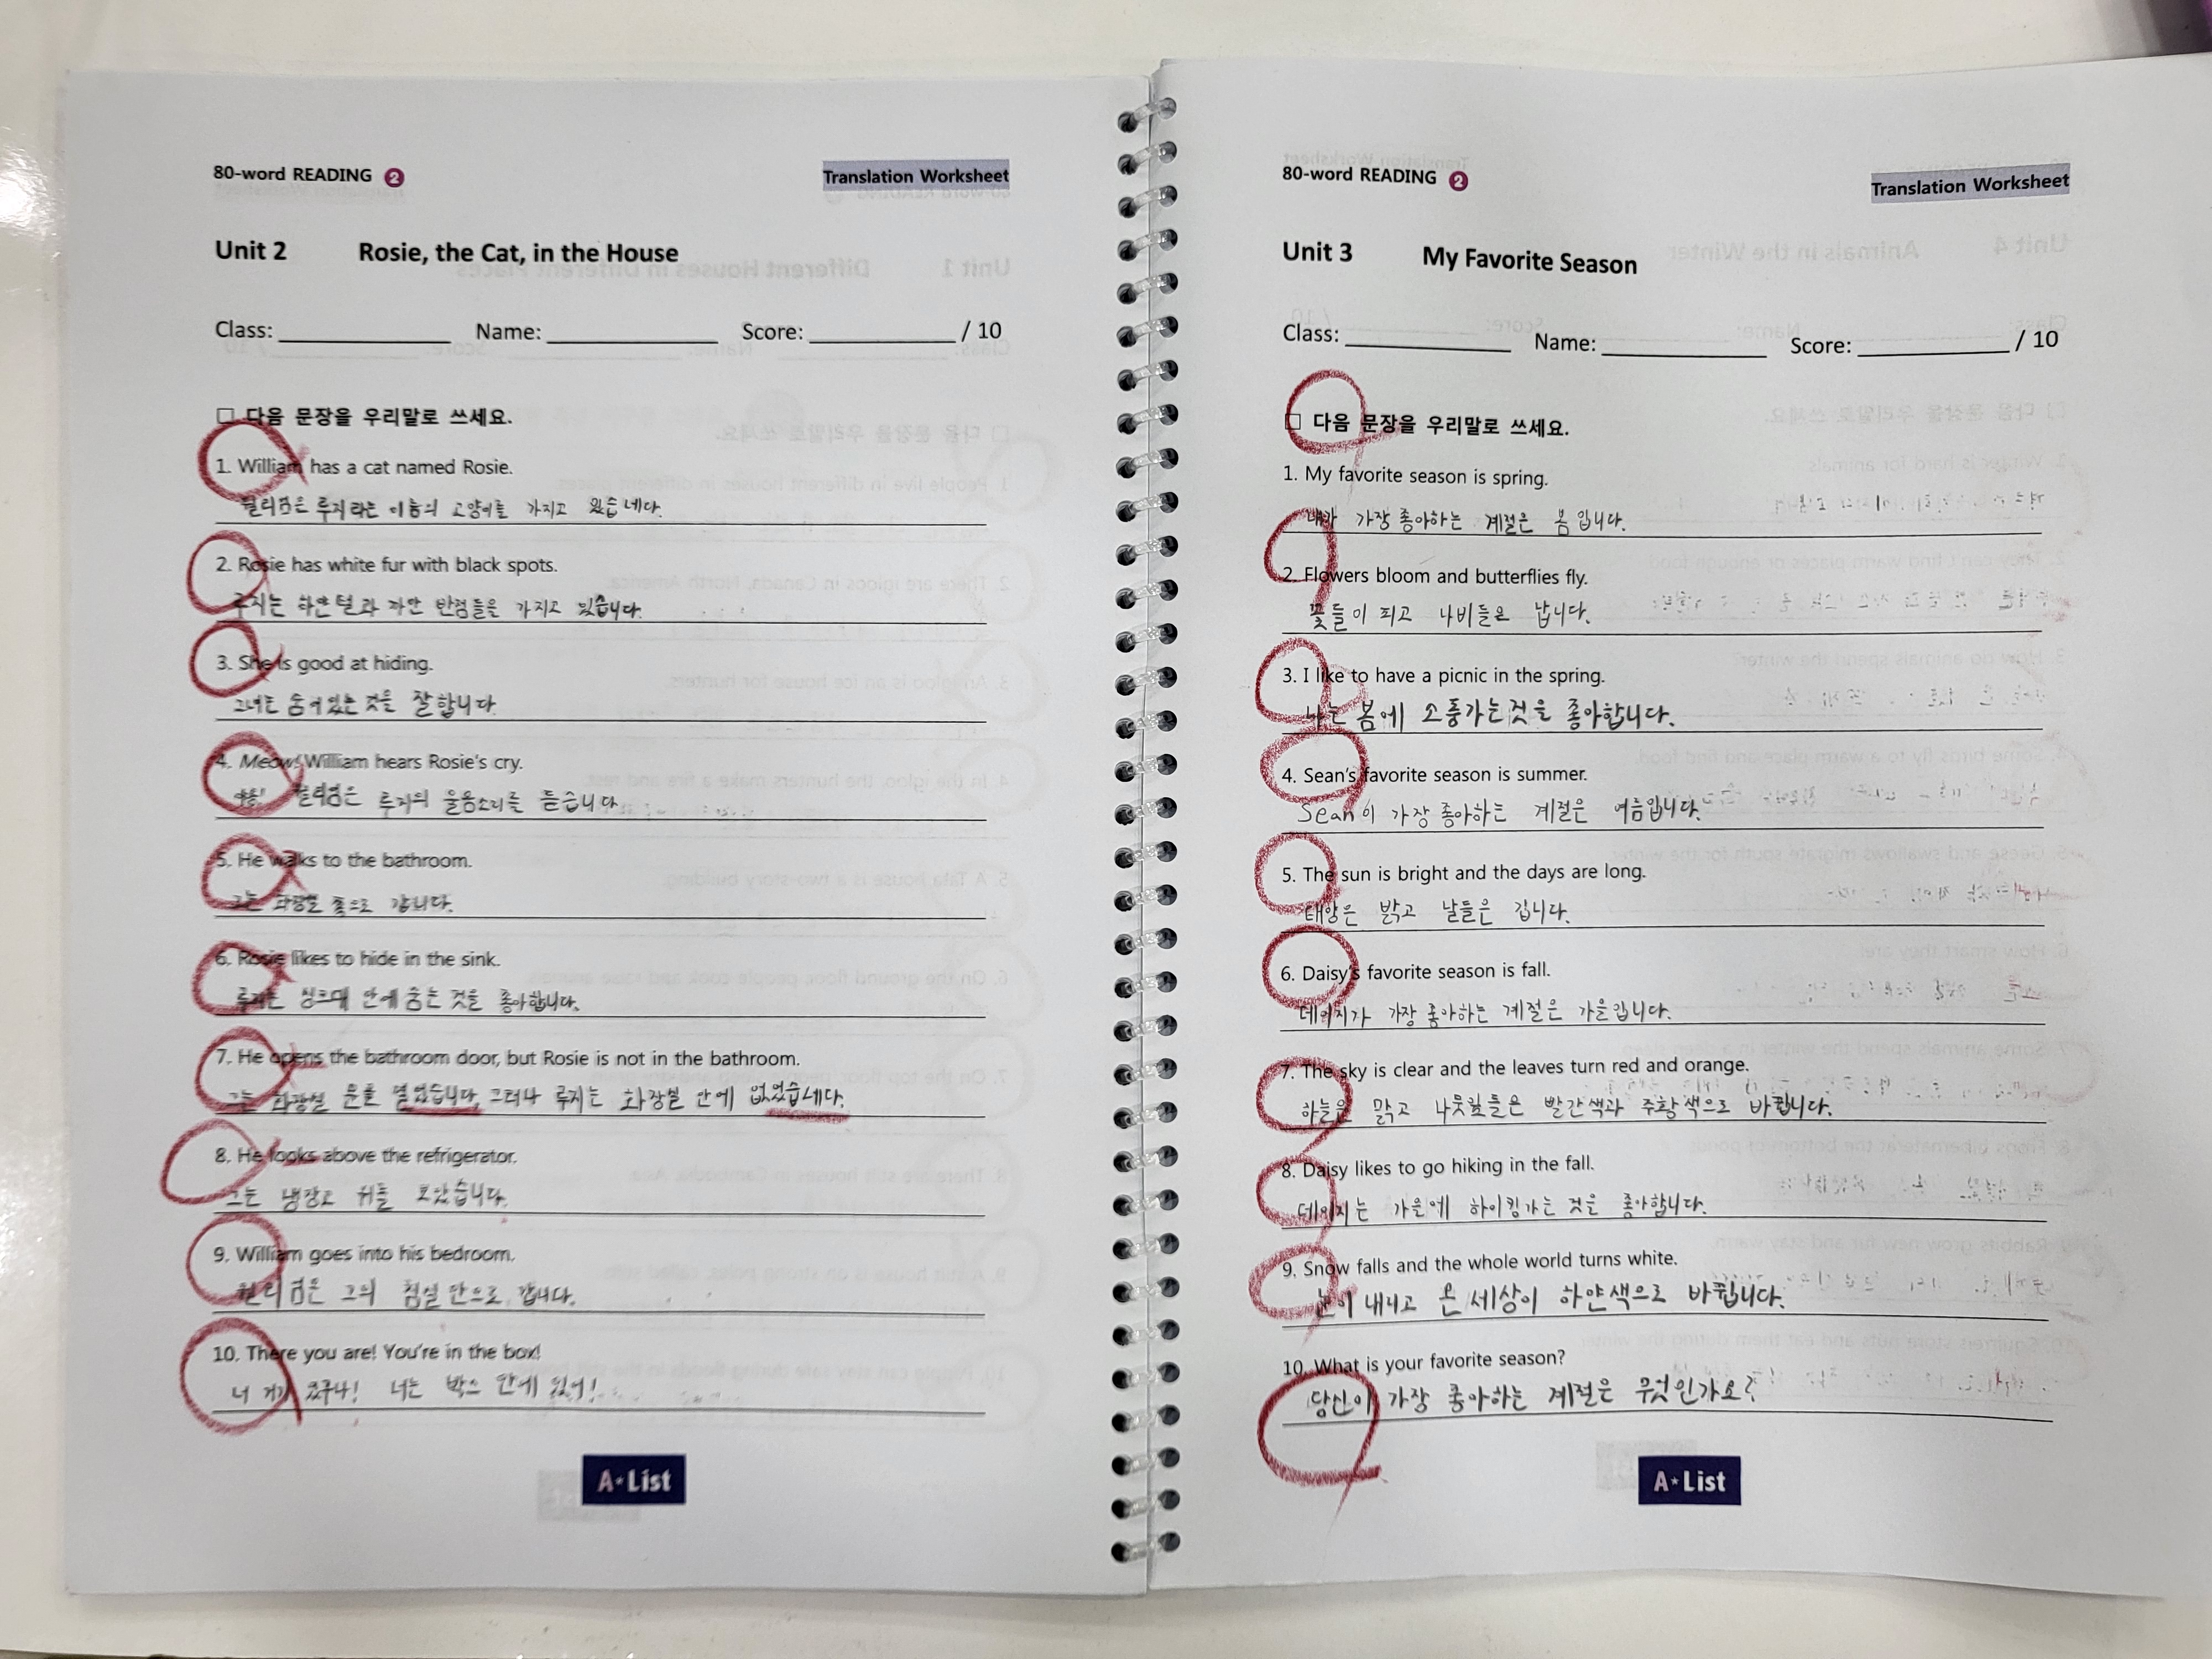 80-word READING 2
Translation Worksheet
Unit 2 Rosie, the Cat, in the House
Class: Name: Score: / 10
□ 다음 문장을 우리말로 쓰세요.
1. William has a cat named Rosie.
윌리엄은 루지라는 이름의 고양이를 가지고 있습네다.
2. Rosie has white fur with black spots.
루지는 하얀털과 까만 반점들을 가지고 있습니다.
3. She is good at hiding.
그녀는 숨어있는 것을 잘합니다.
4. Meow! William hears Rosie's cry.
야옹! 윌리엄은 루지의 울음소리를 듣습니다
5. He walks to the bathroom.
그는 화장실 쪽으로 갑니다.
6. Rosie likes to hide in the sink.
루지는 싱크대 안에 숨는 것을 좋아합니다.
7. He opens the bathroom door, but Rosie is not in the bathroom.
그는 화장실 문을 열었습니다, 그러나 루지는 화장실 안에 없었습네다.
8. He looks above the refrigerator.
그는 냉장고 위를 보았습니다.
9. William goes into his bedroom.
윌리엄은 그의 침실 안으로 갑니다.
10. There you are! You're in the box!
너 거기 있구나! 너는 박스 안에 있어!
A★List
80-word READING 2
Translation Worksheet
Unit 3 My Favorite Season
Class: Name: Score: / 10
□ 다음 문장을 우리말로 쓰세요.
1. My favorite season is spring.
내가 가장 좋아하는 계절은 봄 입니다.
2. Flowers bloom and butterflies fly.
꽃들이 피고 나비들은 납니다.
3. I like to have a picnic in the spring.
나는 봄에 소풍가는것을 좋아합니다.
4. Sean's favorite season is summer.
Sean이 가장 좋아하는 계절은 여름입니다.
5. The sun is bright and the days are long.
태양은 밝고 날들은 깁니다.
6. Daisy's favorite season is fall.
데이지가 가장 좋아하는 계절은 가을입니다.
7. The sky is clear and the leaves turn red and orange.
하늘은 맑고 나뭇잎들은 빨간색과 주황색으로 바뀝니다.
8. Daisy likes to go hiking in the fall.
데이지는 가을에 하이킹가는 것을 좋아합니다.
9. Snow falls and the whole world turns white.
눈이 내리고 온 세상이 하얀색으로 바뀝니다.
10. What is your favorite season?
당신이 가장 좋아하는 계절은 무엇인가요?
A★List